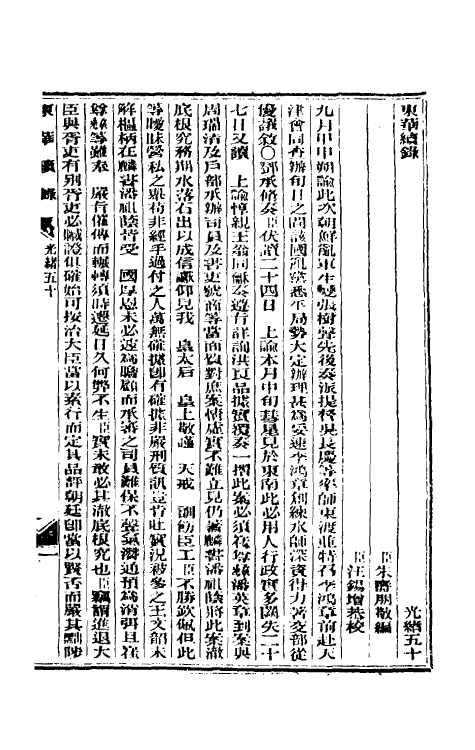 東華續錄
光緒五十
臣朱壽朋敬編
臣汪錫增恭校
九月甲申朔諭此次朝鮮亂軍生變張樹聲先後奏派提督吳長慶等率師東渡並特召李鴻章前赴天
津會同查辦旬日之間該國亂黨悉平局勢大定辦理甚為妥速李鴻章創練水師深資得力著交部從
優議敘○鄧承修奏臣伏讀二十四日 上諭本月中旬彗星見於東南此必用人行政實多闕失二十
七日又讀 上諭惇親王翁同龢奏遵旨詳詢洪良品據實覆奏一摺此案必須崔尊彝潘英章到案與
周瑞清及戶部承辦司員及書吏號商等當面質對庶案情虛實不難立見仍著麟書潘祖蔭將此案澈
底根究務期水落石出以成信讞仰見我 皇太后 皇上敬謹 天戒 訓飭臣工臣不勝欽佩但此
等曖昧營私之舉苟非經手過付之人萬無確據即有確據非嚴刑質訊豈肯吐實況被參之王文韶未
解樞柄在麟書潘祖蔭皆受 國厚恩未必遽為瞻顧而承審之司員難保不聲氣潛通預為消弭且崔
尊彝等雖奉 嚴旨催傳而輾轉須時遷延日久何弊不生臣實未敢必其澈底根究也臣竊謂進退大
臣與胥吏有別胥吏必贓證俱確始可按治大臣當以素行而定其品評朝廷即當以賢否而嚴其黜陟
東華續錄
光緒五十
一